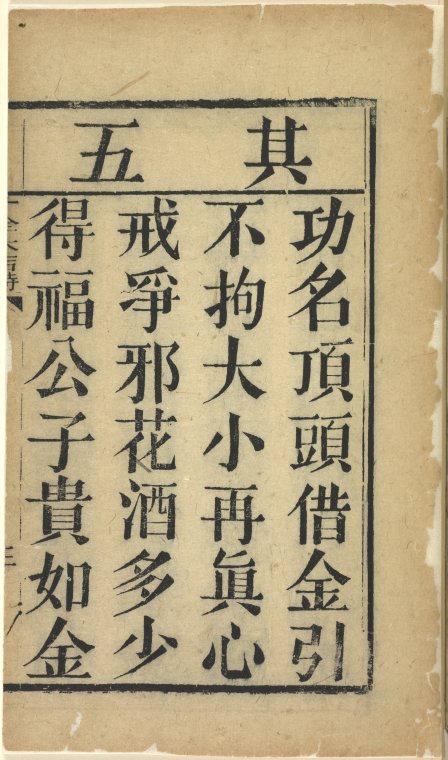 其五
功名頂頭借金引
不拘大小再眞心
戒爭邪花酒多少
得福公子貴如金